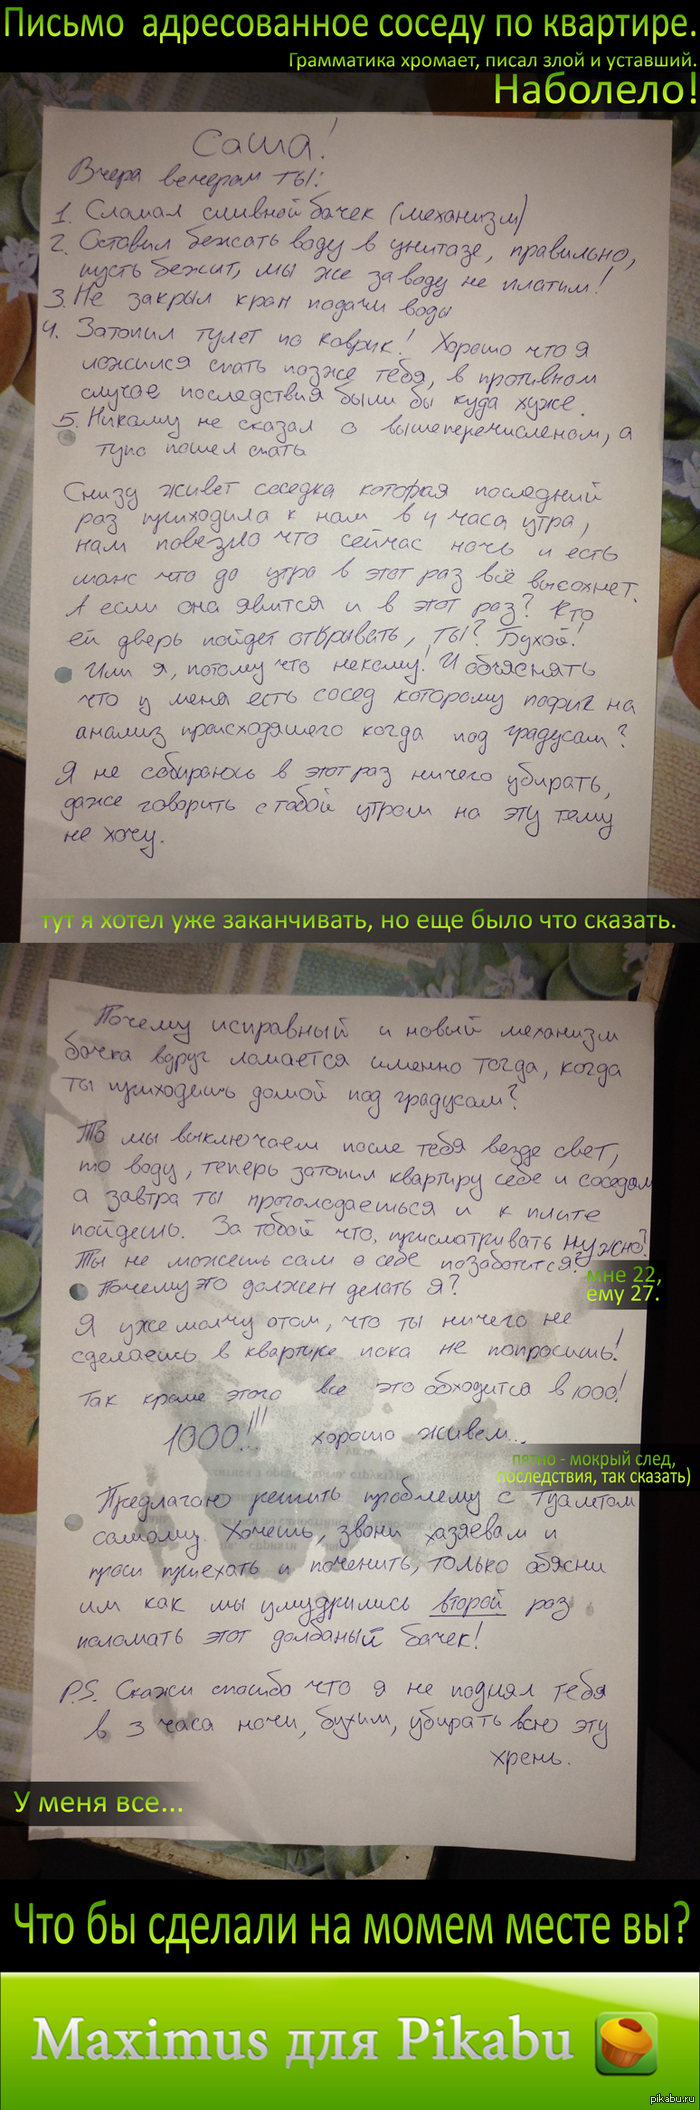 Письмо адресованное соседу по квартире.
Грамматика хромает, писал злой и уставший.
Наболело!
Саша!
Вчера вечером ты:
1. Сломал сливной бачек (механизм)
2. Оставил бежать воду в унитазе, правильно,
пусть бежит, мы же за воду не платим!
3. Не закрыл кран подачи воды
4. Затопил тулет по коврик! Хорошо что я
ложился спать позже тебя, в противном
случае последствия были бы куда хуже.
5. Никому не сказал о вышеперечисленом, а
тупо пошел спать
Снизу живет соседка которая последний
раз приходила к нам в 4 часа утра,
нам повезло что сейчас ночь и есть
шанс что до утра в этот раз всё высохнет.
А если она явится и в этот раз? Кто
ей дверь пойдет открывать, ты? Бухой!
Или я, потому что некому! И объяснять
что у меня есть сосед которому пофиг на
анализ происходящего когда под градусом?
Я не собираюсь в этот раз ничего убирать,
даже говорить с тобой утром на эту тему
не хочу.
тут я хотел уже заканчивать, но еще было что сказать.
Почему исправный и новый механизм
бачка вдруг ломается именно тогда, когда
ты приходешь домой под градусом?
То мы выключаем после тебя везде свет,
то воду, теперь затопил квартиру себе и соседам
а завтра ты проголодаешься и к плите
пойдешь. За тобой что, присматривать нужно?
Ты не можешь сам о себе позаботится?
мне 22,
ему 27.
Почему это должен делать я?
Я уже молчу отом, что ты ничего не
сделаешь в квартире пока не попросишь!
Так кроме этого все это обходится в 1000!
1000!!! хорошо живем...
пятно - мокрый след,
последствия, так сказать)
Предлагаю решить проблему с туалетом
самому. Хочешь, звони хазяевам и
проси приехать и починить, только обясни
им как мы умудрились второй раз
поломать этот долбаный бачек!
P.S. Скажи спасибо что я не поднял тебя
в 3 часа ночи, бухим, убирать всю эту
хрень.
У меня все...
Что бы сделали на момем месте вы?
Maximus для Pikabu
pikabu.ru